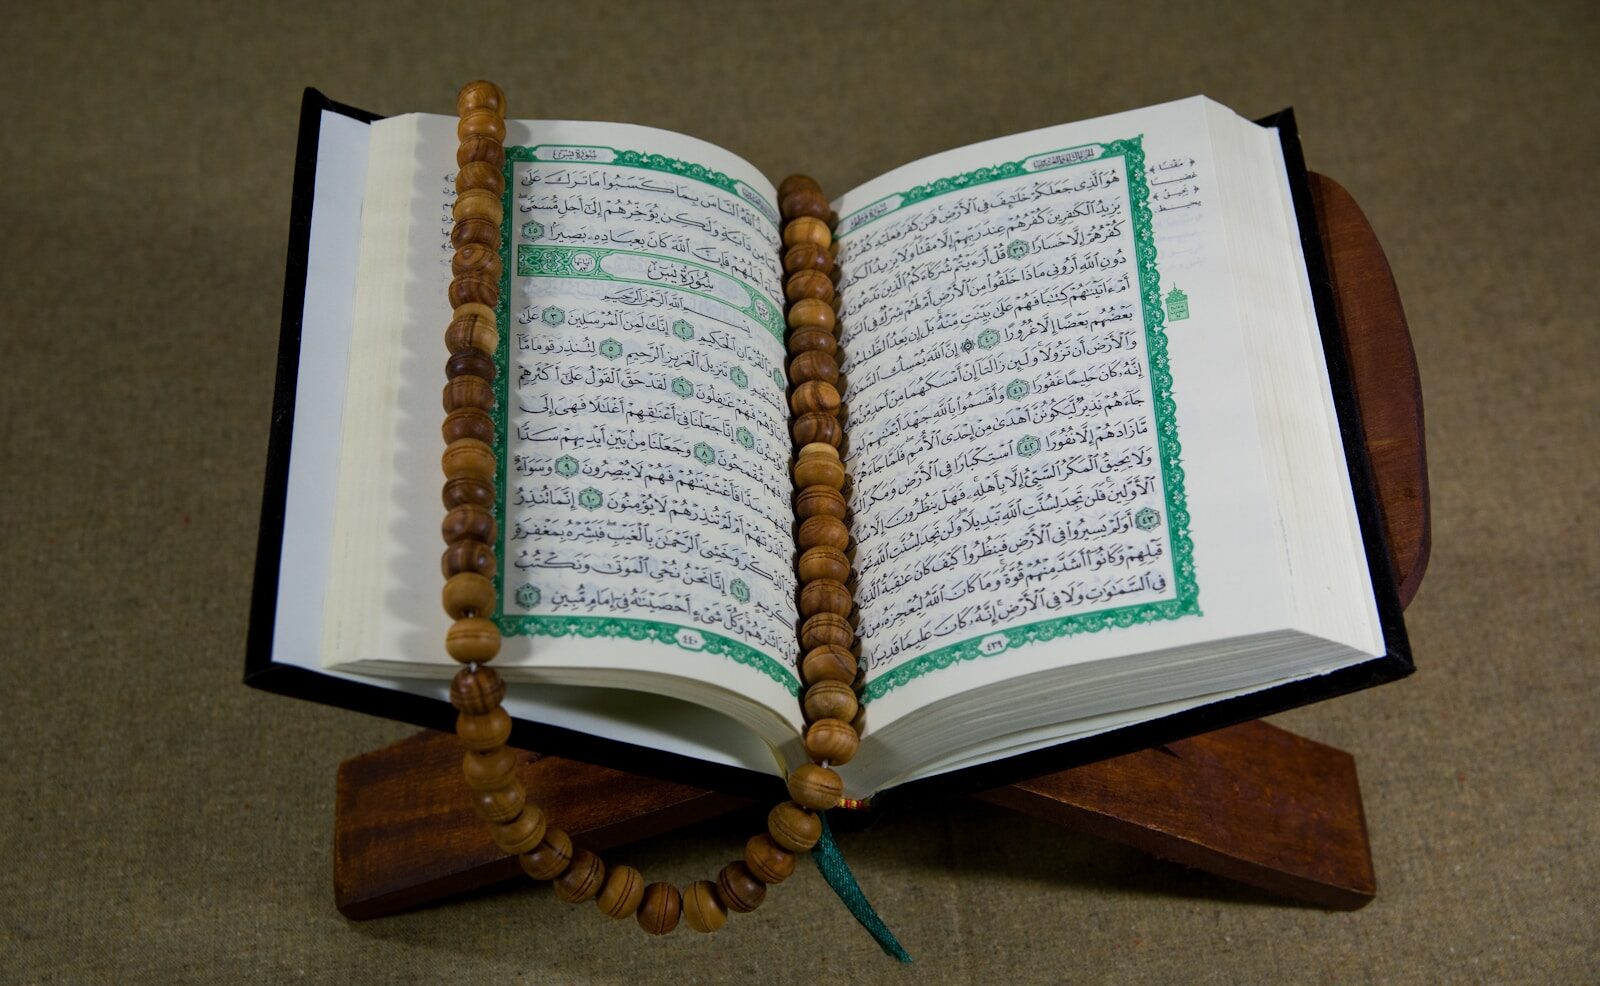 الجزء الثاني والعشرون
سورة فاطر
هُوَ ٱلَّذِى جَعَلَكُمْ خَلَٰٓئِفَ فِى ٱلْأَرْضِ فَمَن كَفَرَ فَعَلَيْهِ كُفْرُهُۥ
يَزِيدُ ٱلْكَٰفِرِينَ كُفْرُهُمْ عِندَ رَبِّهِمْ إِلَّا مَقْتًا وَلَا يَزِيدُ
كُفْرُهُمْ إِلَّا خَسَارًا ٣٩ قُلْ أَرَءَيْتُمْ شُرَكَآءَكُمُ ٱلَّذِينَ تَدْعُونَ
دُونِ ٱللَّهِ أَرُونِى مَاذَا خَلَقُوا۟ مِنَ ٱلْأَرْضِ أَمْ لَهُمْ شِرْكٌ فِى
أَمْ ءَاتَيْنَٰهُمْ كِتَٰبًا فَهُمْ عَلَىٰ بَيِّنَتٍ مِّنْهُ بَلْ إِن يَعِدُ
بَعْضُهُم بَعْضًا إِلَّا غُرُورًا ٤٠ إِنَّ ٱللَّهَ يُمْسِكُ
وَٱلْأَرْضَ أَن تَزُولَا وَلَئِن زَالَتَآ إِنْ أَمْسَكَهُمَا مِنْ أَحَدٍ مِّنۢ
إِنَّهُۥ كَانَ حَلِيمًا غَفُورًا ٤١ وَأَقْسَمُوا۟ بِٱللَّهِ جَهْدَ أَيْمَٰنِهِمْ لَئِن
جَآءَهُمْ نَذِيرٌ لَّيَكُونُنَّ أَهْدَىٰ مِنْ إِحْدَى ٱلْأُمَمِ فَلَمَّا جَآءَهُمْ
مَّا زَادَهُمْ إِلَّا نُفُورًا ٤٢ ٱسْتِكْبَارًا فِى ٱلْأَرْضِ وَمَكْرَ
وَلَا يَحِيقُ ٱلْمَكْرُ ٱلسَّيِّئُ إِلَّا بِأَهْلِهِۦ فَهَلْ يَنظُرُونَ إِلَّا
ٱلْأَوَّلِينَ فَلَن تَجِدَ لِسُنَّتِ ٱللَّهِ تَبْدِيلًا وَلَن تَجِدَ لِسُنَّتِ ٱللَّهِ
٤٣ أَوَلَمْ يَسِيرُوا۟ فِى ٱلْأَرْضِ فَيَنظُرُوا۟ كَيْفَ كَانَ عَٰقِبَةُ ٱلَّذِينَ
قَبْلِهِمْ وَكَانُوٓا۟ أَشَدَّ مِنْهُمْ قُوَّةً وَمَا كَانَ ٱللَّهُ لِيُعْجِزَهُۥ مِن
فِى ٱلسَّمَٰوَٰتِ وَلَا فِى ٱلْأَرْضِ إِنَّهُۥ كَانَ عَلِيمًا قَدِيرًا
٤٣٩
مقتا
غضبا
يحيق
يحيط
سورة يس
ٱللَّهُ ٱلنَّاسَ بِمَا كَسَبُوا۟ مَا تَرَكَ عَلَىٰ
مِن دَآبَّةٍ وَلَٰكِن يُؤَخِّرُهُمْ إِلَىٰٓ أَجَلٍ مُّسَمًّى
أَجَلُهُمْ فَإِنَّ ٱللَّهَ كَانَ بِعِبَادِهِۦ بَصِيرًۢا ٤٥
سورة يس
ٱللَّهِ ٱلرَّحْمَٰنِ ٱلرَّحِيمِ
وَٱلْقُرْءَانِ ٱلْحَكِيمِ ٢ إِنَّكَ لَمِنَ ٱلْمُرْسَلِينَ ٣ عَلَىٰ
٤ تَنزِيلَ ٱلْعَزِيزِ ٱلرَّحِيمِ ٥ لِتُنذِرَ قَوْمًا مَّآ
فَهُمْ غَٰفِلُونَ ٦ لَقَدْ حَقَّ ٱلْقَوْلُ عَلَىٰٓ أَكْثَرِهِمْ
٧ إِنَّا جَعَلْنَا فِىٓ أَعْنَٰقِهِمْ أَغْلَٰلًا فَهِىَ إِلَى
فَهُم مُّقْمَحُونَ ٨ وَجَعَلْنَا مِنۢ بَيْنِ أَيْدِيهِمْ سَدًّا
سَدًّا فَأَغْشَيْنَٰهُمْ فَهُمْ لَا يُبْصِرُونَ ٩ وَسَوَآءٌ
أَمْ لَمْ تُنذِرْهُمْ لَا يُؤْمِنُونَ ١٠ إِنَّمَا تُنذِرُ
ٱلذِّكْرَ وَخَشِىَ ٱلرَّحْمَٰنَ بِٱلْغَيْبِ فَبَشِّرْهُ بِمَغْفِرَةٍ
كَرِيمٍ ١١ إِنَّا نَحْنُ نُحْىِ ٱلْمَوْتَىٰ وَنَكْتُبُ
وَءَاثَٰرَهُمْ وَكُلَّ شَىْءٍ أَحْصَيْنَٰهُ فِىٓ إِمَامٍ مُّبِينٍ ١٢
٤٤٠